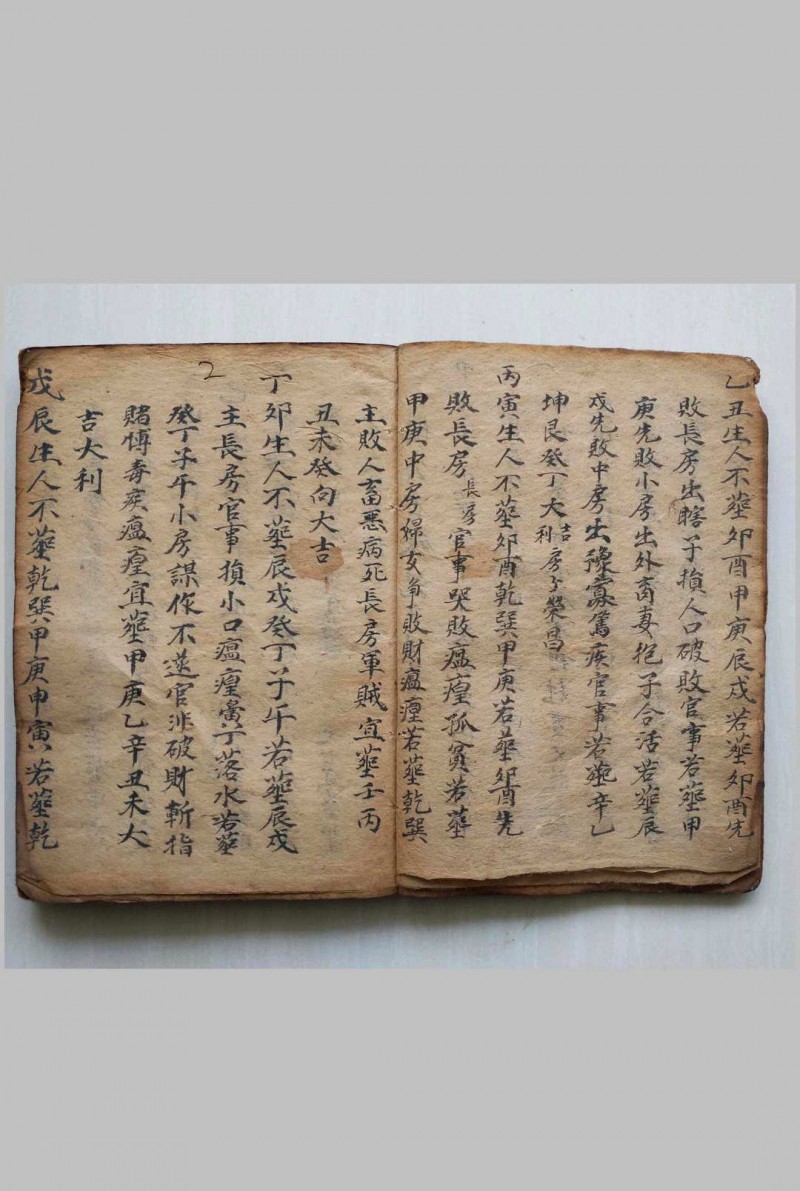 乙丑生人不塟卯酉甲庚辰戍若塟卯酉先
敗長房出瞎子損人口破敗官事若塟甲
庚先敗小房出外商妻抱子合活若塟辰
戍先敗中房出 篤疾官事若塟辛乙
坤艮癸丁大吉利房子榮昌
丙寅生人不塟卯酉乾巽甲庚若塟卯酉先
敗長房長房官事哭敗瘟瘽孤貧若塟
甲庚中房婦女爭敗財瘟瘽若塟乾巽
主敗人畜悪病死長房軍賊宜塟壬丙
丑未癸向大吉
2
丁卯生人不塟辰戍癸丁子午若塟辰戍
主長房官事損小口瘟瘽 丁落水若塟
癸丁子午小房謀作不遂官非破財斬指
賭愽毒疾瘟瘽宜塟甲庚乙辛丑未大
吉大利
戍辰生人不塟乾巽甲庚申寅若塟乾